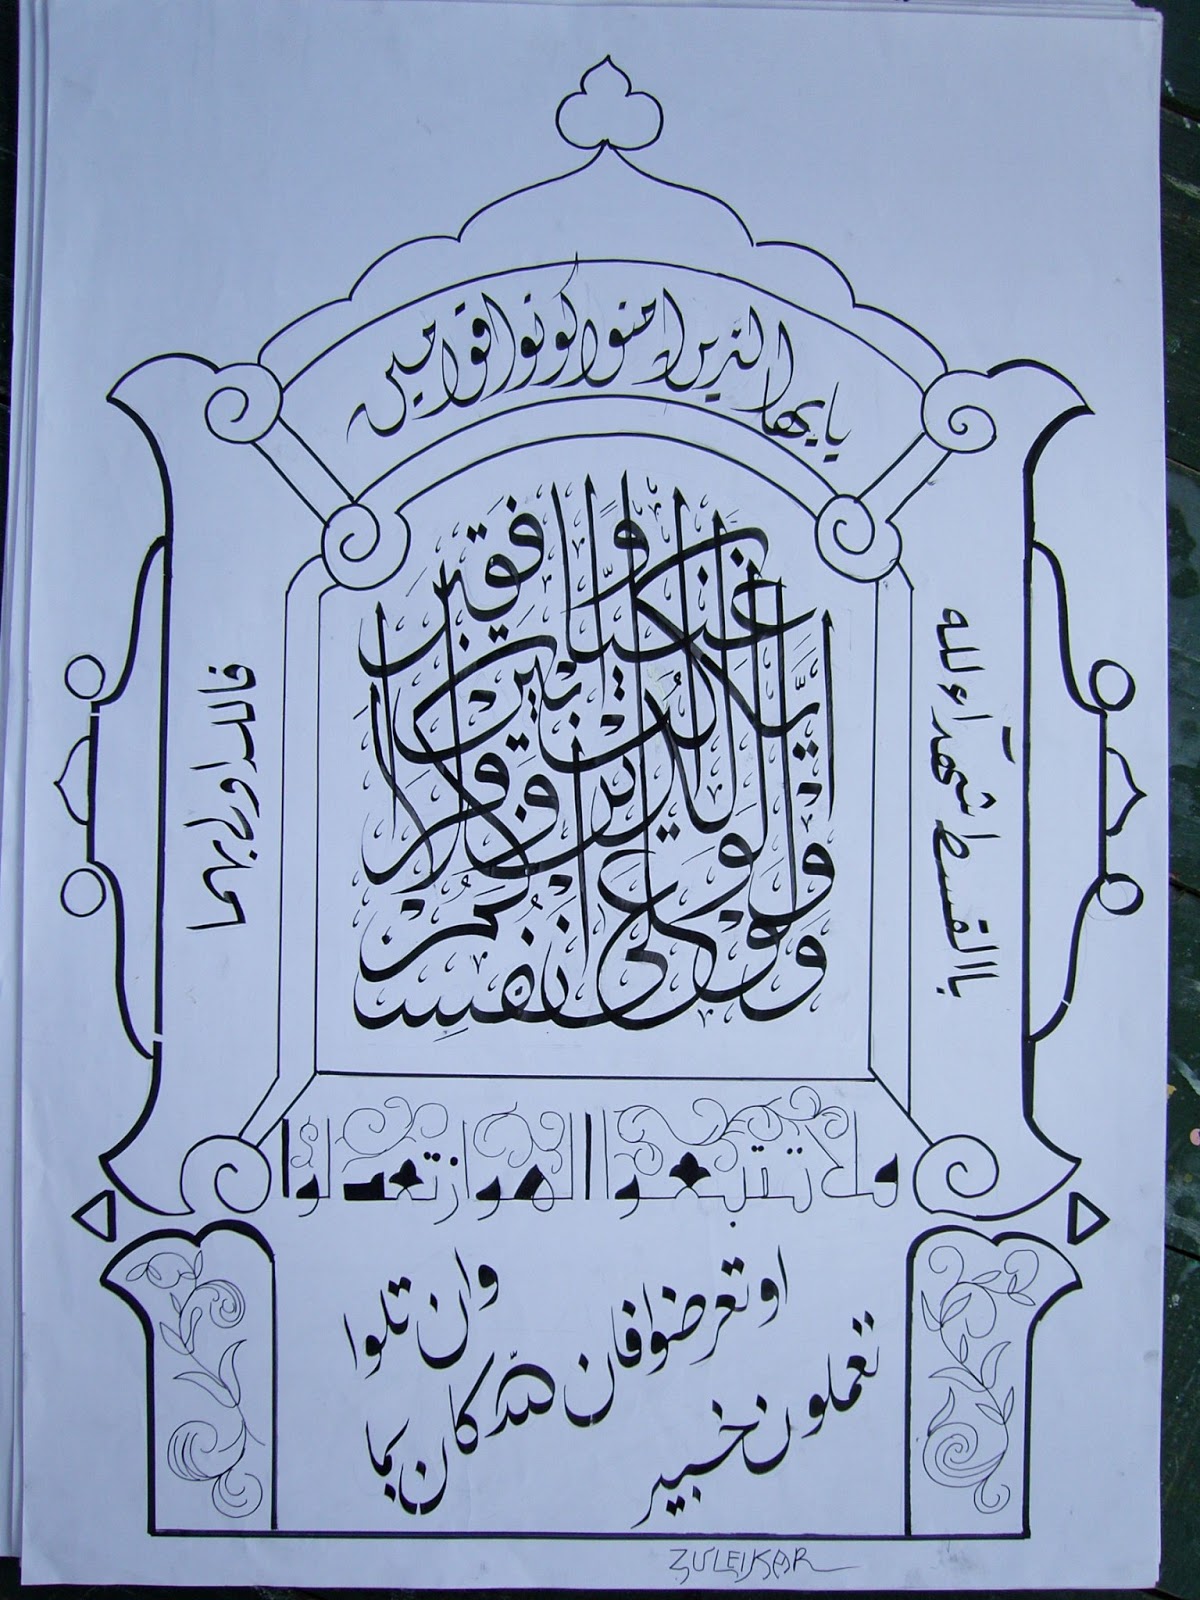 يايها الذين امنوا كونوا قوامين
باالقسط شهداء لله
ولو على أنفسكم أو الوالدين والأقربين إن يكن غنيا أو فقيرا
فالله اولى بهما
ولا تتبعوا الهوا ان تعدلوا
وان تلوا
او تعرضوا فان الله كان بما
تعملون خبير
ZULEIKAR